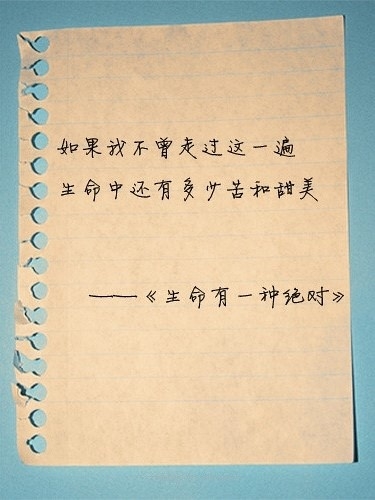 如果我不曾走过这一遍
生命中还有多少苦和甜美
——《生命有一种绝对》